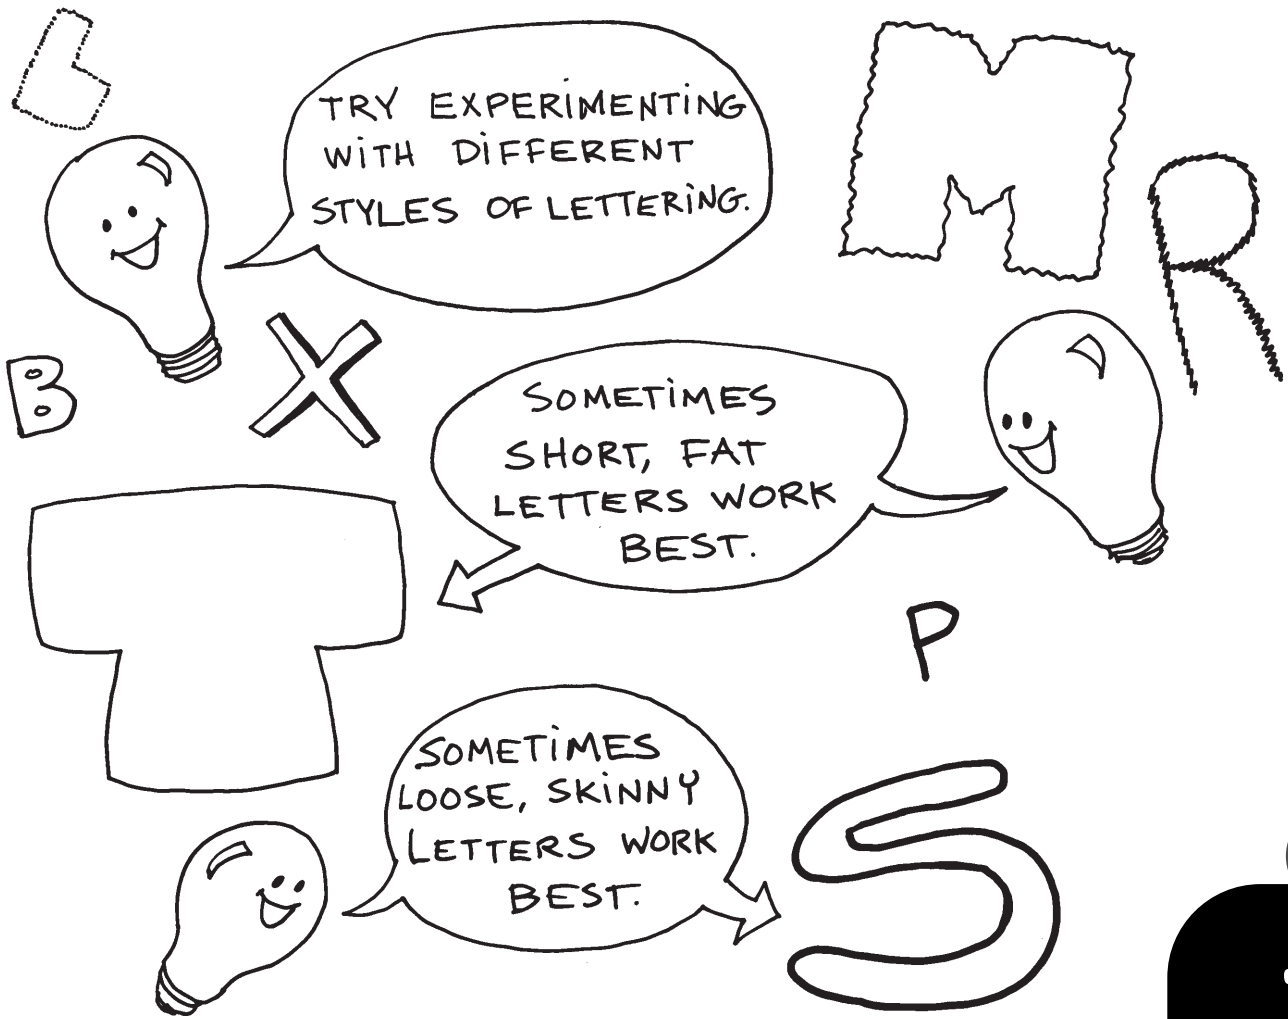 L
TRY EXPERIMENTING
WITH DIFFERENT
STYLES OF LETTERING.
M
R
B
X
SOMETIMES
SHORT, FAT
LETTERS WORK
BEST.
T
P
SOMETIMES
LOOSE, SKINNY
LETTERS WORK
BEST.
S